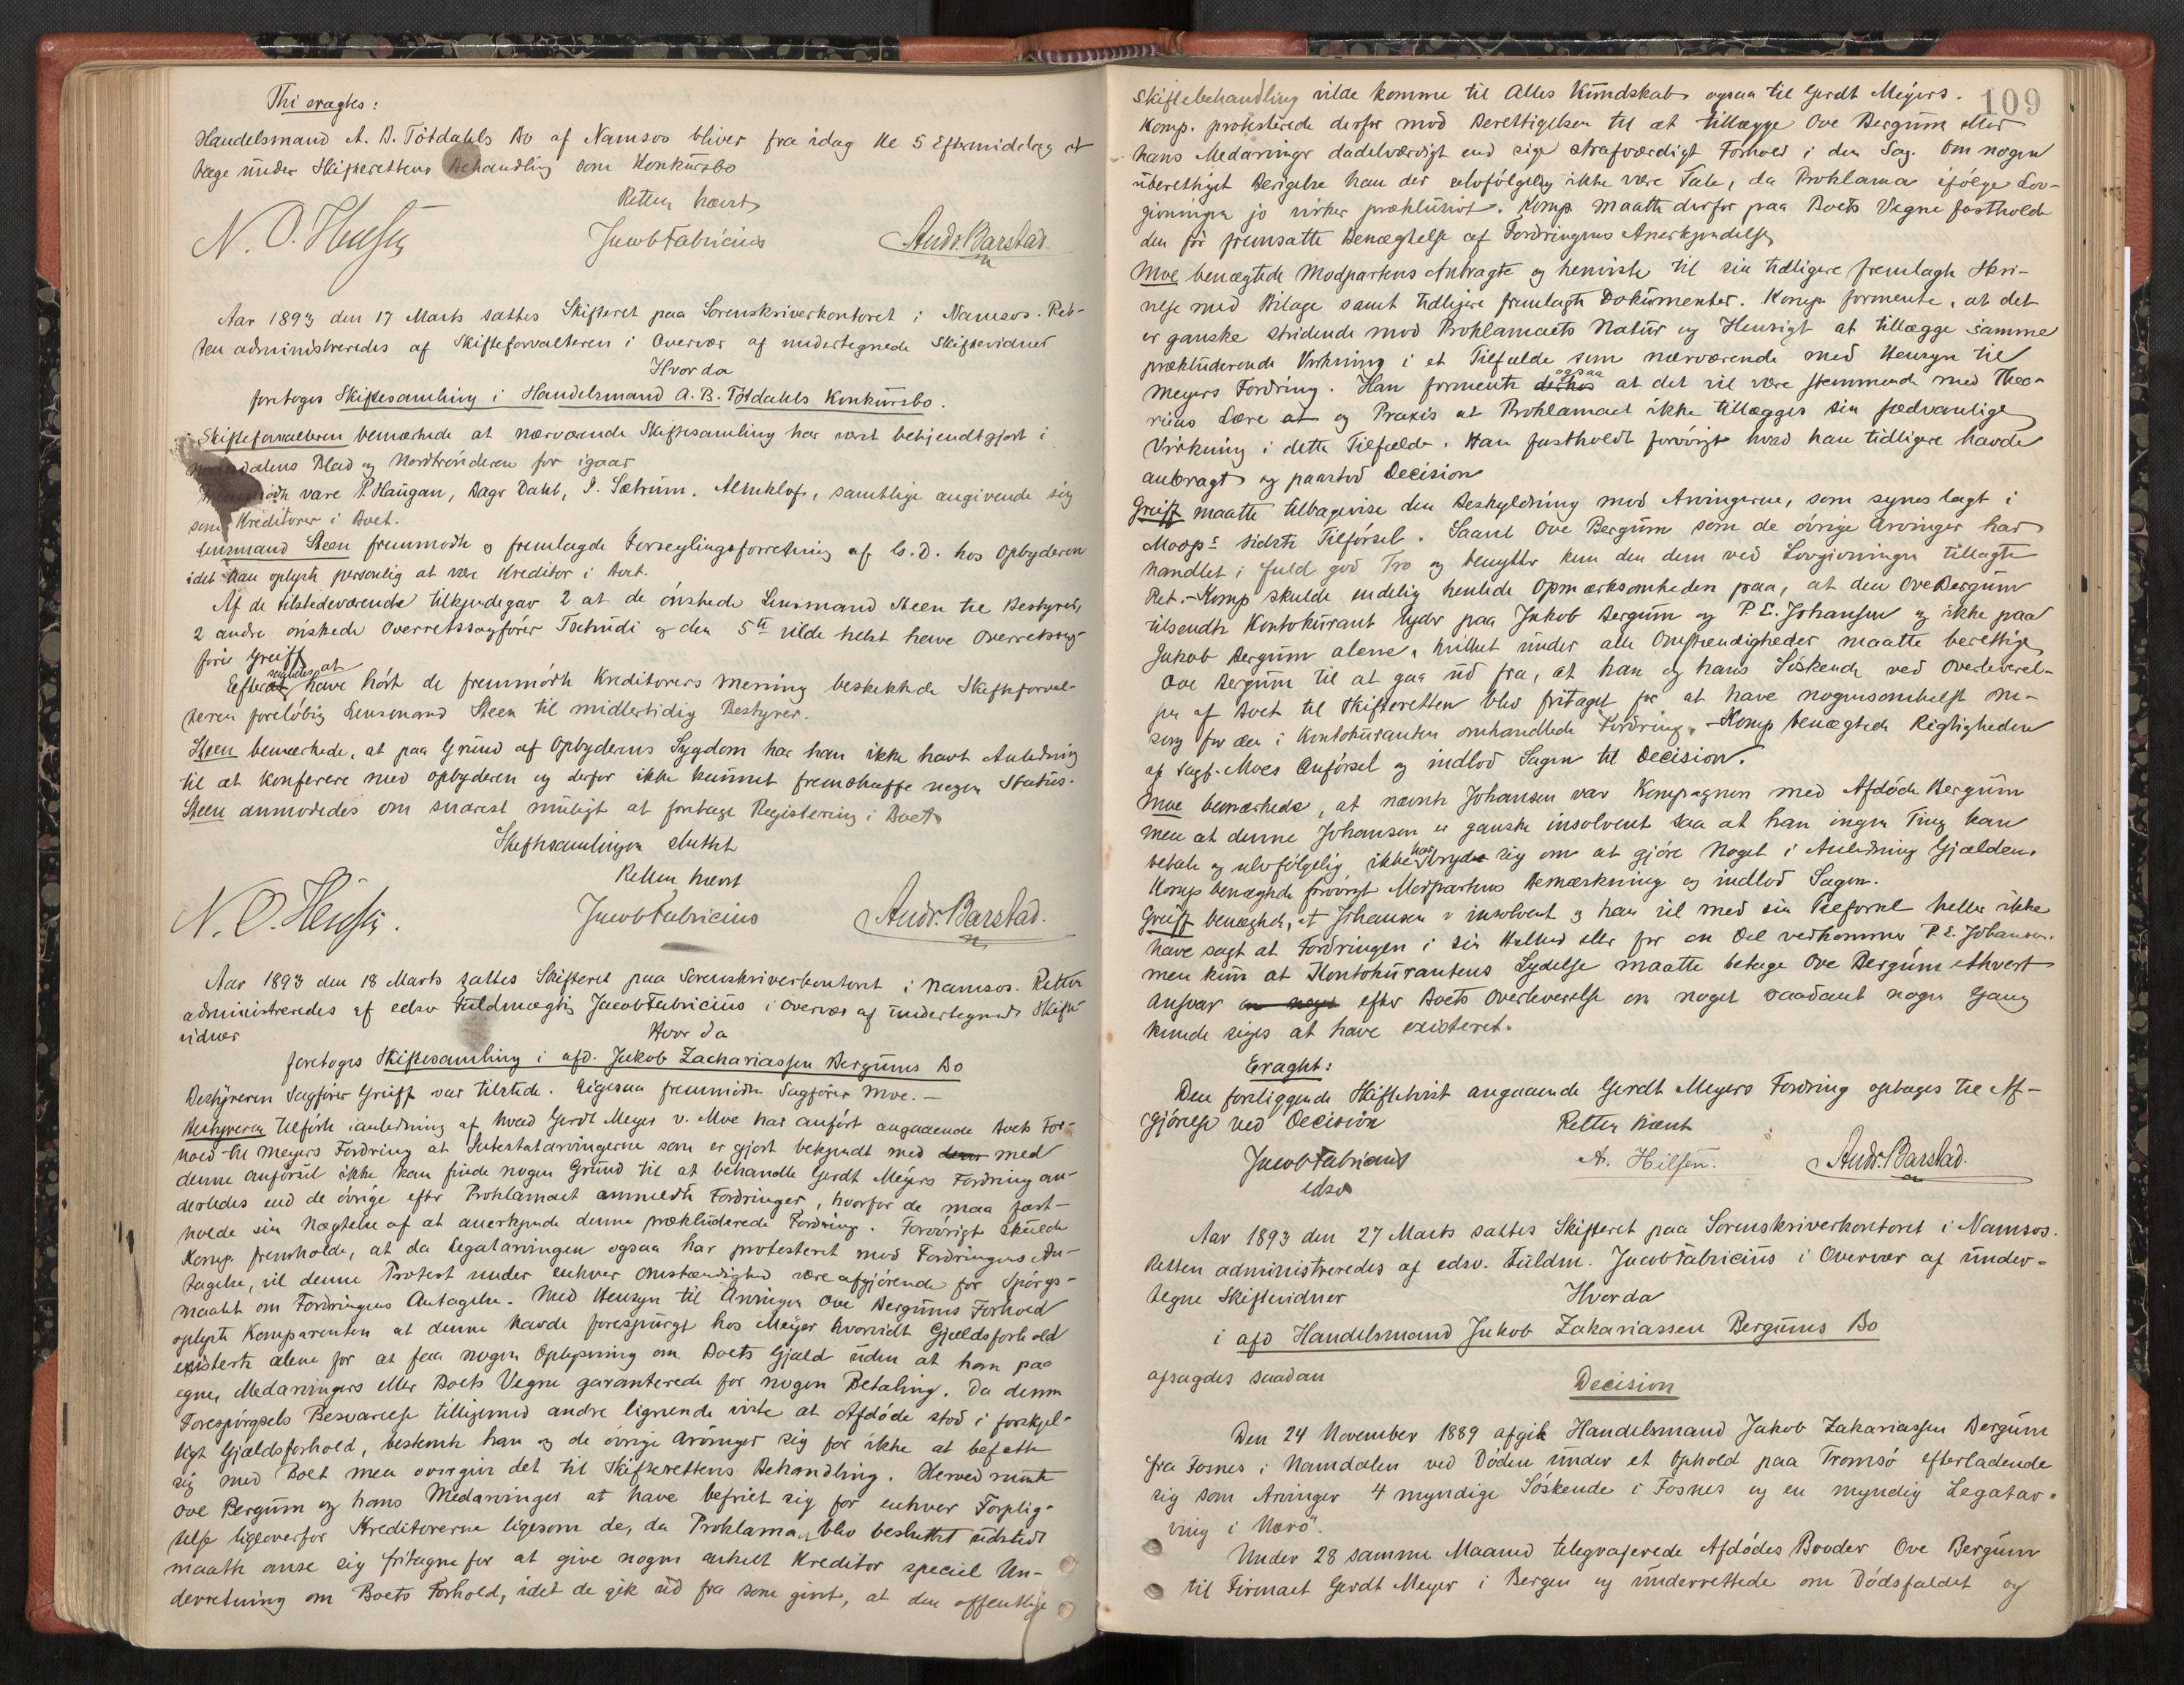 Thi eragtes:
Handelsmand A. B. Tötdahls Bo af Namsos bliver fra idag Kl 5 Eftermiddag at
tage under Skifterettens Behandling som Konkursbo
Retten hævet
N. O. Hensen Jacob Fabricius Andr. Barstad
Aar 1893 den 17 Marts sattes Skifteret paa Sorenskriverkontoret i Namsos. Ret-
ten administreredes af Skifteforvalteren i Overvær af undertegnede Skiftevidner
Hvor da
foretoges Skiftesamling i Handelsmand A. B. Tötdahls Konkursbo.
Skifteforvalteren bemærkede at nærværende Skiftesamling har været bekjendtgjort i
Namdalens Blad og Nordtrönderen for igaar
vare P. Haugan, Dags Dahl, I. Sætrum, Almklof, samtlige angivende sig
som Kreditorer i Boet.
Lensmand Steen fremmødte og fremlagde Forseglingsforretning af G. D. hos Opbyderen
idet han oplyste personlig at være Kreditor i Boet.
Af de tilstedeværende tilkjendegav 2 at de ønskede Lensmand Steen til Bestyrer,
2 andre ønskede Overretssagfører Tschudi og den 5te vilde helst have Overretssag-
fører Greiff
Efter at have hört de fremmödte Kreditorers Mening beskikkede Skifteforval-
teren foreløbig Lensmand Steen til midlertidig Bestyrer.
Steen bemærkede, at paa Grund af Opbyderens Sygdom har han ikke havt Anledning
til at konferere med opbyderen og derfor ikke kunnet fremskaffe nogen Status.
Steen anmodedes om snarest muligt at foretage Registrering i Boet
Skiftesamlingen sluttet
Retten hævet
N. O. Hensen. Jacob Fabricius Andr. Barstad.
Aar 1893 den 18 Marts sattes Skifteret paa Sorenskriverkontoret i Namsos. Retten
administreredes af edsv Fuldmægtig Jacob Fabricius i Overvær af undertegnede Skifte
vidner
Hvor da
foretoges Skiftesamling i afd. Jakob Zachariassen Bergums Bo
Bestyreren Sagfører Greiff var tilstede. Ligesaa fremmødte Sagfører Moe.-
Bestyreren tilførte i anledning af hvad Gerdt Meyer v. Moe har anført angaaende Boets For-
hold til Meyers Fordring at Intestatarvingerne som er gjort bekjendt med dens med
denne anførsel ikke kan finde nogen Grund til at behandle Gerdt Meyers Fordring an-
derledes end de övrige efter Proklamaet anmeldte Fordringer, hvorfor de maa fast-
holde sin Nægtelse af at anerkjende denne prækluderede Fordring. Forövrigt skulde
Komp. fremholde, at da Legatarvingen ogsaa har protesteret mod Fordringens An-
tagelse, vil denne Protest under enhver Omstændighed være afgjörende for Spörgs-
maalet om Fordringens Antagelse. Med Hensyn til Arvingen Ove Bergums Forhold
oplyste Komparenten at denne havde forespurgt hos Meyer hvorvidt Gjældsforhold
existerte alene for at faa nogen Oplysning om Boets Gjæld uden at han paa
egne, Medarvingers eller Boets Vegne garanterede for nogen Betaling. Da denne
Forespörgsels Besvarelse tilligemed andre lignende viste at Afdöde stod i forskjel-
ligt Gjældsforhold, bestemte han og de övrige Arvinger sig for ikke at befatte
sig med Boet men overgive det til Skifterettens Behandling. Herved mente
Ove Bergum og hans Medarvinger at have befriet sig for enhver Forplig-
telse ligeoverfor Kreditorerne ligesom de, da Proklama blev besluttet udstedt
maatte anse sig fritagne for at give nogen enkelt Kreditor speciel Un-
derretning om Boets Forhold, idet de gik ud fra som givet, at den offentlige
109
Skiftebehandling vilde komme til Alles Kundskab ogsaa til Gerdt Meyers.
Komp. protesterede derfor mod Berettigelsen til at tillægge Ove Bergum eller
hans Medarvinger dadelværdigt end sige strafværdigt Forhold i den Sag. Om nogen
uberettiget Berigelse kan der selvfölgelig ikke være Tale, da Proklama ifölge Lov-
givningen jo virker præklusivt. Komp. maatte derfor paa Boets Vegne fastholde
den för fremsatte Benægtelse af Fordringens Anerkjendelse
Moe benægtede Modpartens Anbragte og henviste til sin tidligere fremlagte Skri-
velse med Bilage samt tidligere fremlagte Dokumenter. Komp. formente, at det
er ganske stridende mod Proklamaets Natur og Hensigt at tillægge samme
prækluderende Virkning i et Tilfælde som nærværende med Hensyn til
Meyers Fordring. Han formente derhos ogsaa at det vil være stemmende med Theo-
riens Lære at og Praxis at Proklamaet ikke tillægges sin sædvanlige
Virkning i dette Tilfælde. Han fastholdt forövrigt hvad han tidligere havde
anbragt og paastod Decision
Greiff maatte tilbagevise den Beskyldning mod Arvingerne, som synes lagt i
Moes sidste Tilførsel. Saavel Ove Bergum som de övrige Arvinger har
handlet i fuld god Tro og benytter kun den dem ved Lovgivningen tillagte
Ret.- Komp skulde endelig henlede Opmærksomheden paa, at den Ove Bergum
tilsendte Kontokurant lyder paa Jakob Bergum og P. E. Johansen og ikke paa
Jakob Bergum alene, hvilket under alle Omstændigheder maatte berettige
Ove Bergum til at gaa ud fra, at han og hans Söskende ved Overleverel-
sen af Boet til Skifteretten blev fritaget for at have nogensomhelst
for den i Kontokuranten omhandlede Fordring. - Komp benægtede Rigtigheden
af Sagf. Moes Anförsel og indlod Sagen til Decision.
Moe bemærkede, at nævnte Johansen var Kompagnon med Afdöde Bergum
men at denne Johansen er ganske insolvent saa at han ingen Ting kan
betale og selvfölgelig ikke har bryde sig om at gjöre Noget i Anledning Gjælden.
Komp benægtede forövrigt Modpartens Bemærkning og indlod Sagen.
Greiff benægtede, at Johansen er insolvent og han vil med sin Tilførsel heller ikke
have sagt at Fordringen i sin Helhed eller for en Del vedkommer P. E. Johansen.
men kun at Kontokurantens Lydelse maatte betage Ove Bergum ethvert
Ansvar efter Boets Overleverelse om noget saadant nogen Gang
kunde siges at have existeret.
Eragtet:
Den foreliggende Skiftetvist angaaende Gerdt Meyers Fordring optages til Af-
gjörelse ved Decision Retten hævet
Jacob Fabricius A. Hilsen. Andr. Barstad.
edsv
Aar 1893 den 27 Marts sattes Skifteret paa Sorenskriverkontoret i Namsos.
Retten administreredes af edsv. Fuldm. Jacob Fabricius i Overvær af under-
tegne Skiftevidner Hvor da
i afd Handelsmand Jakob Zakariassen Bergums Bo
afsagdes saadan Decision
Den 24 November 1889 afgik Handelsmand Jakob Zakariassen Bergum
fra Fosnes i Namdalen ved Döden under et Ophold paa Tromsö efterladende
sig som Arvinger 4 myndige Söskende i Fosnes og en myndig Legatar-
ving i Nærö.
Under 28 samme Maaned telegraferede Afdödes Broder Ove Bergum
til Firmaet Gerdt Meyer i Bergen og underrettede om Dödsfaldet og